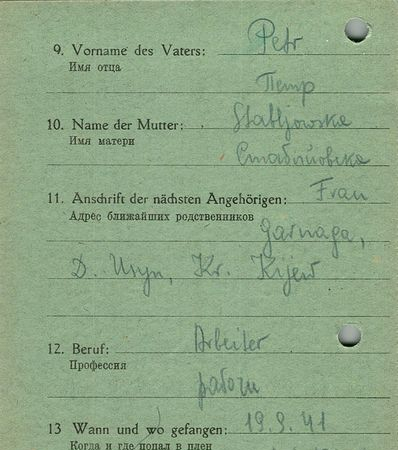 9. Vorname des Vaters: Petr
Имя отца
Петр
10. Name der Mutter: Stabljowska
Имя матери
Стаблiовска
11. Anschrift der nächsten Angehörigen: Frau
Адрес ближайших родственников
Garnaga,
D. Usyn, Kr. Kijew
12. Beruf: Arbeiter
Профессия
работн
13 Wann und wo gefangen: 19.9.41
Когда и где попал в плен